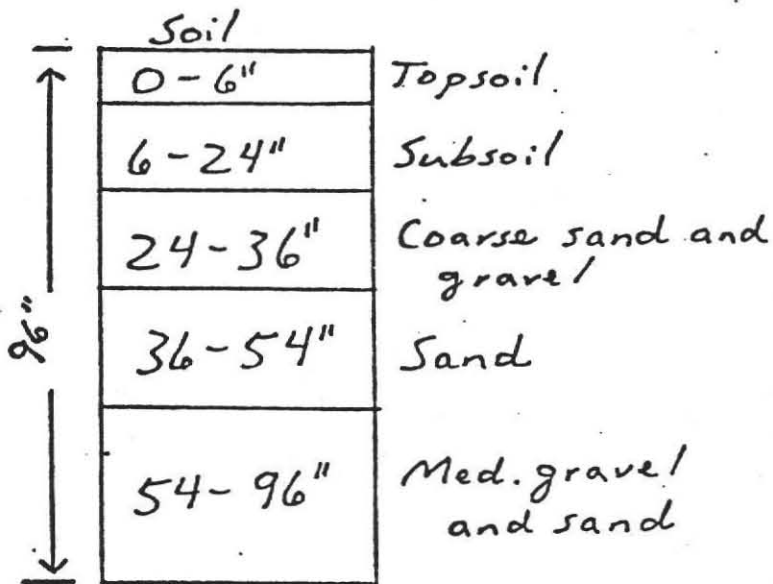 Soil
0-6" Topsoil.
6-24" Subsoil
24-36" Coarse sand and
gravel
36-54" Sand
54-96" Med. gravel
and sand
96"